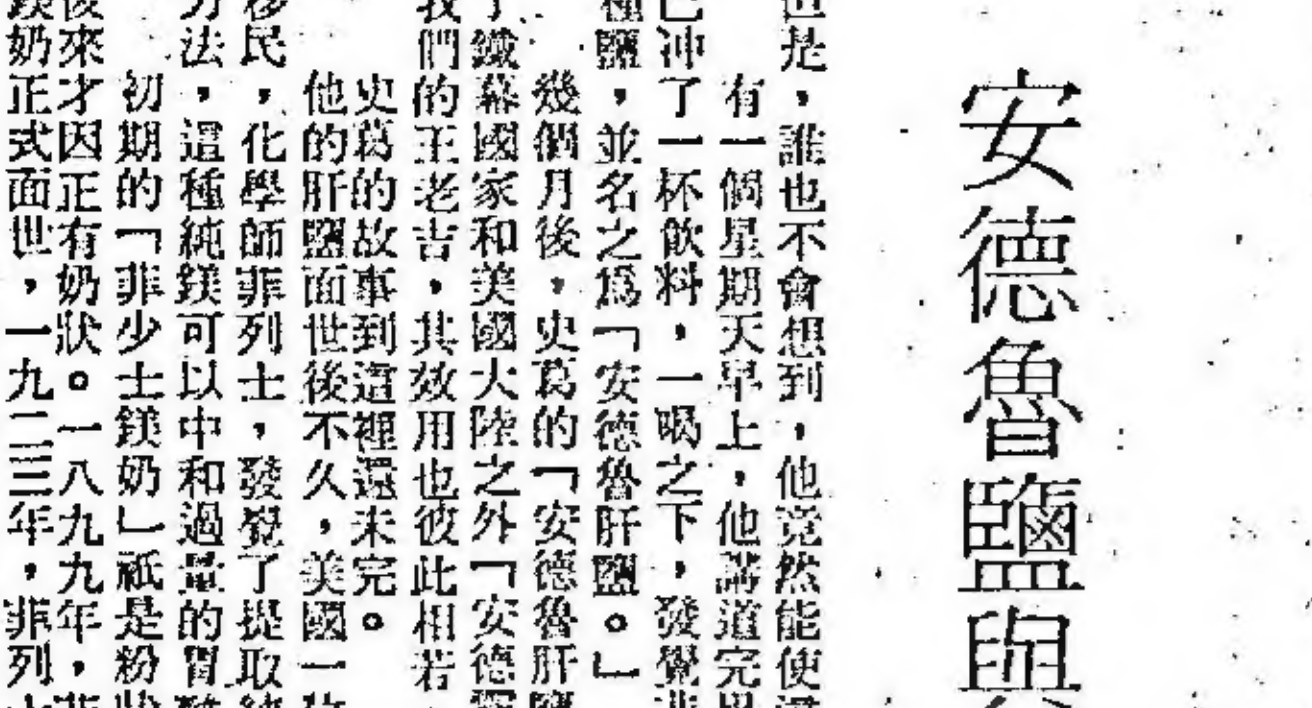 安德魯鹽與
是，誰也不會想到，他竟然能使
有一個星期天早上，他講道完畢
冲了一杯飲料，一喝之下，發覺
種鹽，並名之為「安德魯肝鹽。」
幾個月後，史葛的「安德魯肝鹽
鐵幕國家和美國大陸之外「安德
我們的王老吉，其效用也彼此相若
史葛的故事到這裡還未完。
他的肝鹽面世後不久，美國一
移民，化學師菲列士，發覺了提取純
方法，這種純鎂可以中和過量的胃
初期的「菲少士鎂奶」祇是粉狀
後來才因正有奶狀。一八九九年，菲
鎂奶正式面世，一九二三年，菲列